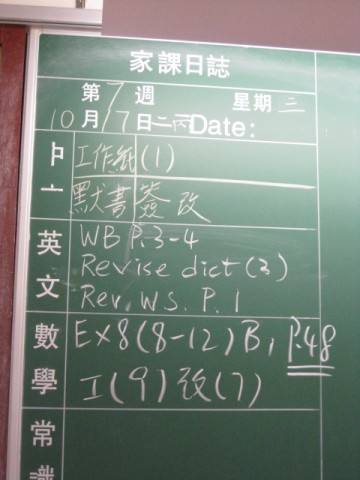 家課日誌
第7週 星期三
10月17日二丙Date:
中 工作紙(1)
默書簽改
英文 WB P.3-4
Revise dict(3)
Rev. WS. P.1
數學 Ex8(8-12)B, P.48
I(9)改(7)
常識